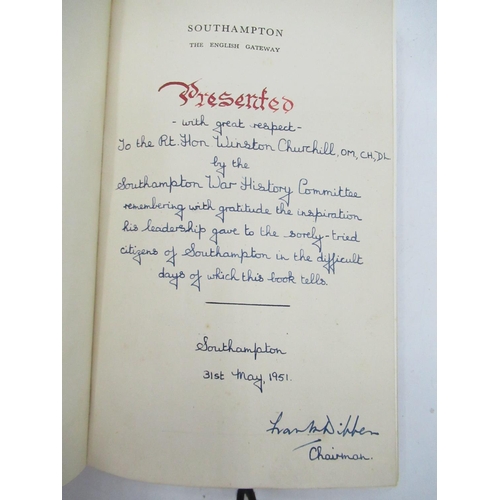 SOUTHAMPTON
THE ENGLISH GATEWAY
Presented
- with great respect -
To the Rt. Hon Winston Churchill, OM, CH, DL
by the
Southampton War History Committee
remembering with gratitude the inspiration
his leadership gave to the sorely-tried
citizens of Southampton in the difficult
days of which this book tells.
Southampton
31st May, 1951.
Chairman.